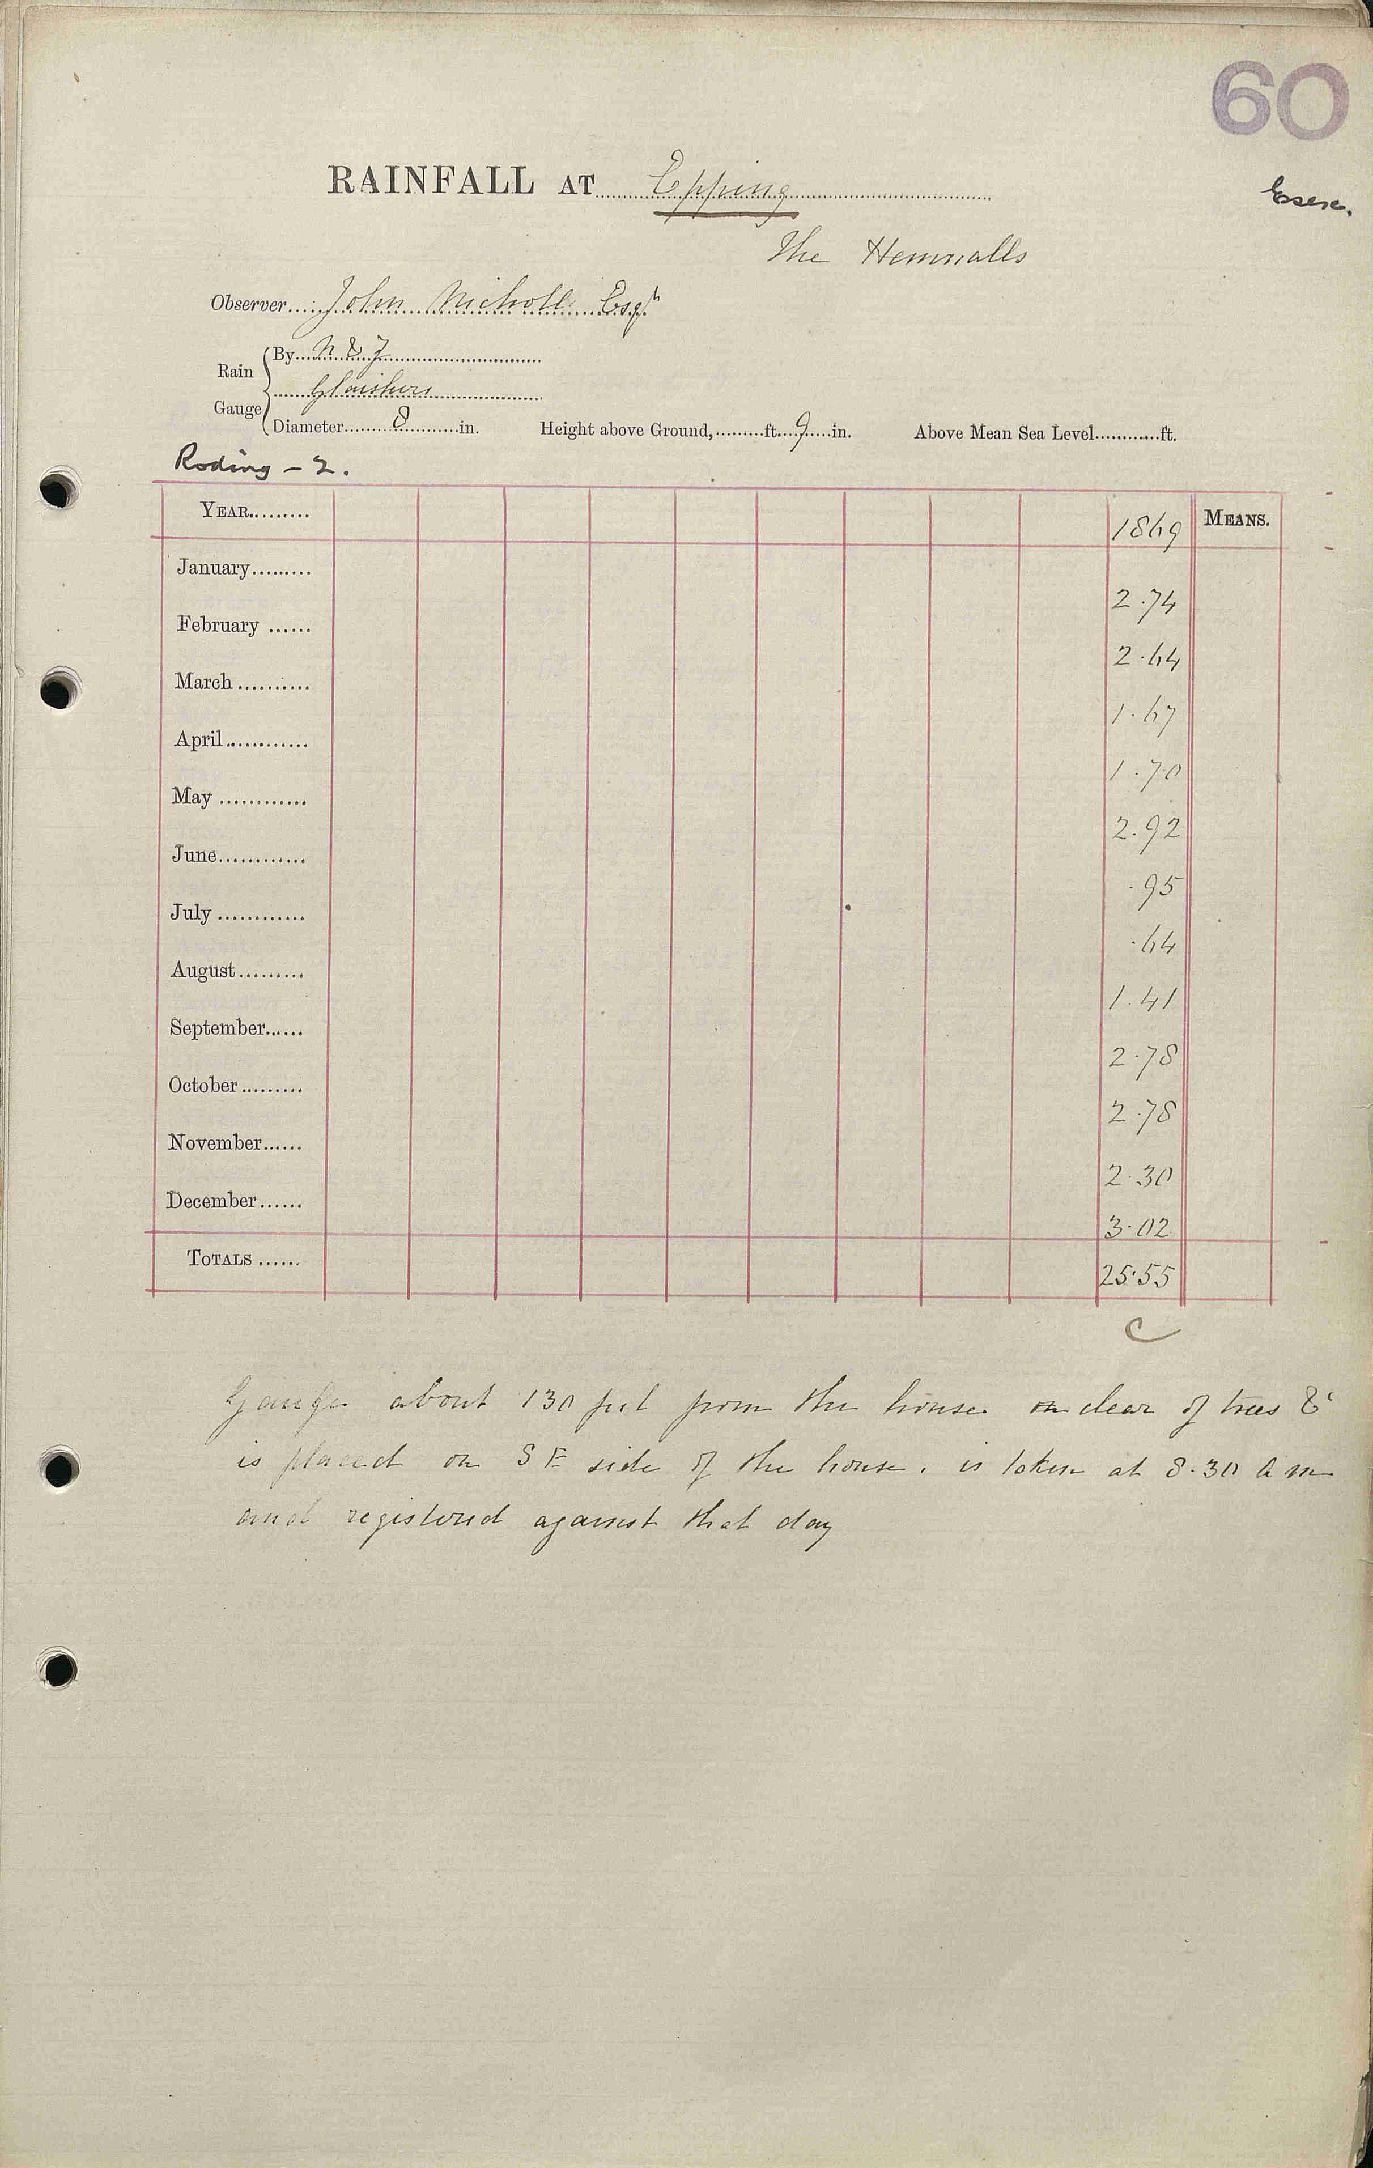 60
RAINFALL AT Epping
Essex.
The Hemnalls
Observer John Nicholls Esqr
Rain Gauge By N & Z
Glaishers
Diameter 8 in. Height above Ground, ft. 9 in. Above Mean Sea Level ft.
Roding - 2.
YEAR 1869 MEANS.
January 2.74
February 2.64
March 1.67
April 1.70
May 2.92
June .95
July .64
August 1.41
September 2.78
October 2.78
November 2.30
December 3.02
TOTALS 25.55
C
Gauge about 130 feet from the house clear of trees &c
is placed on SE side of the house. is taken at 8.30 am
and registered against that day